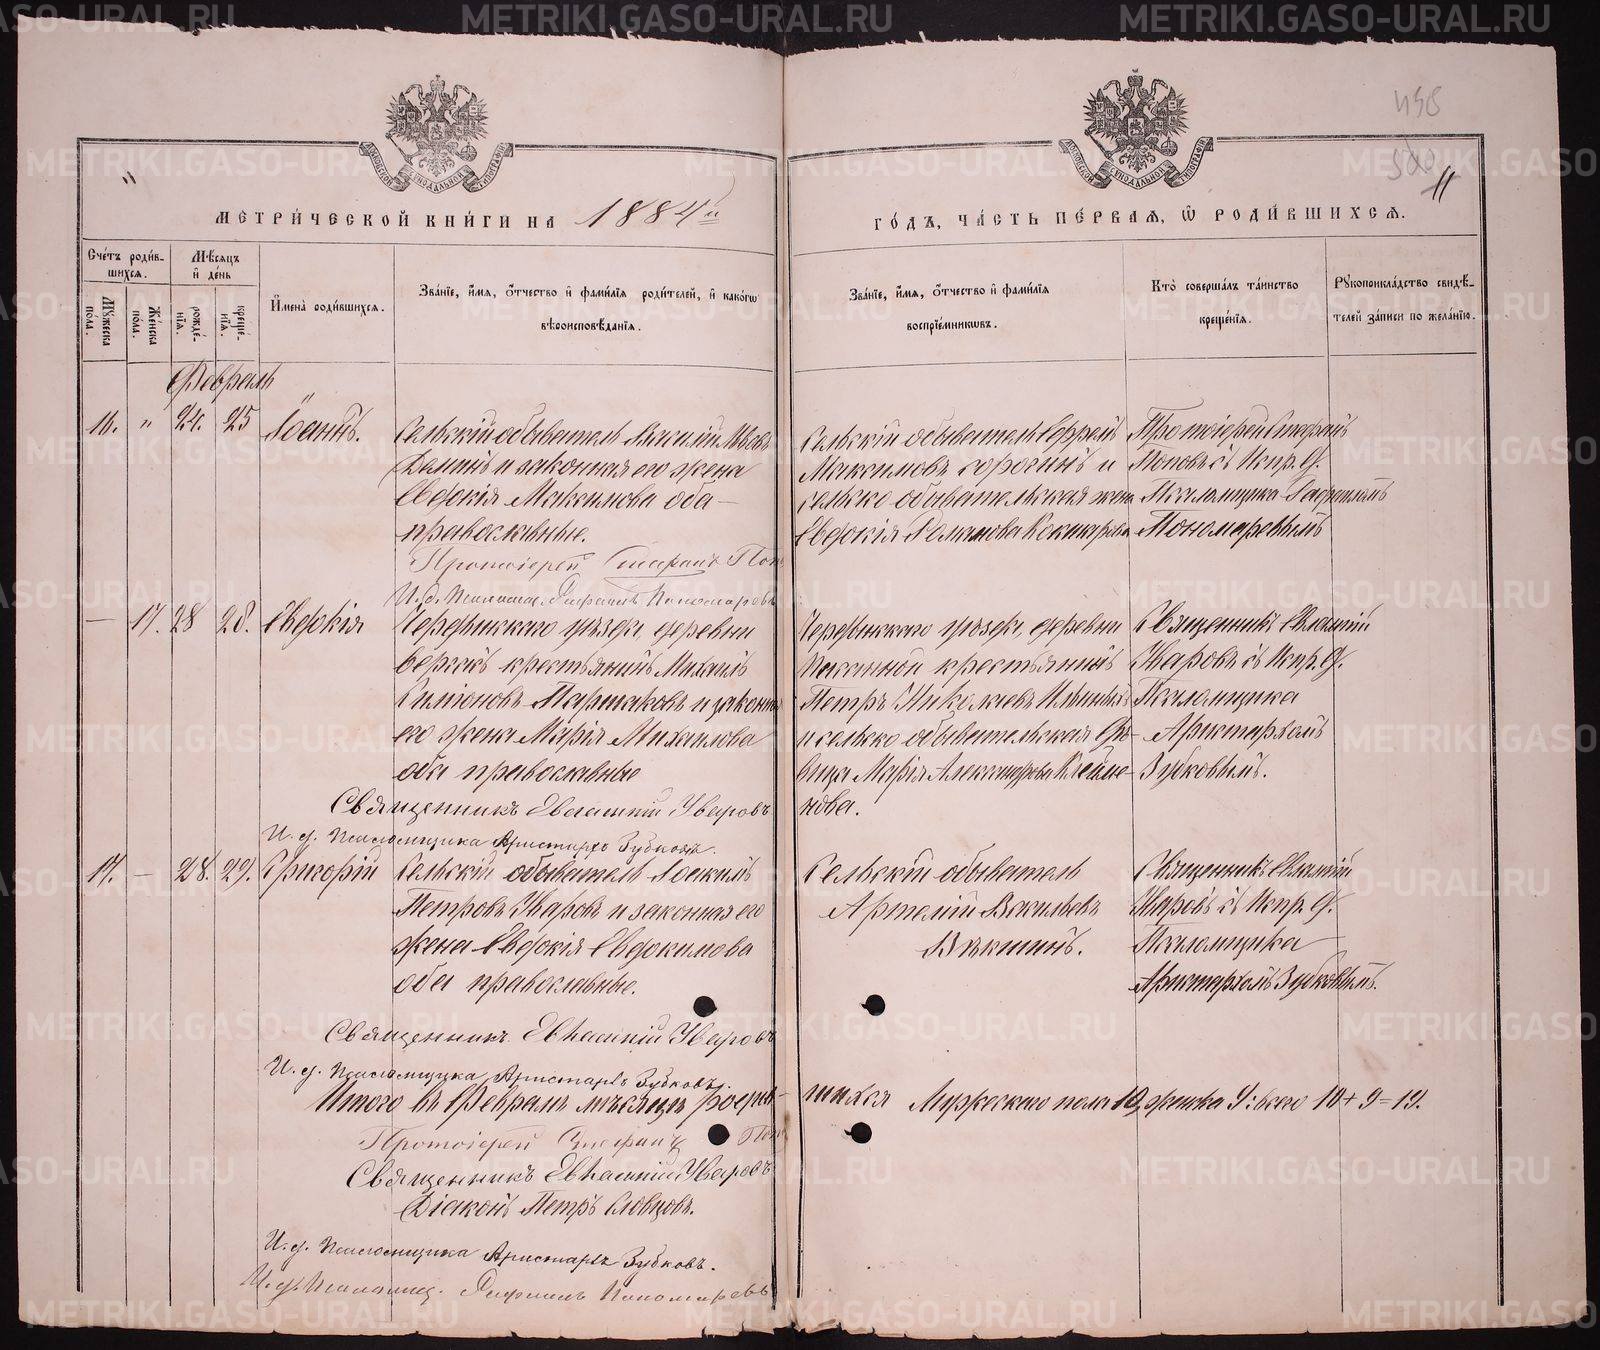 METRIKI.GASO-URAL.RU
МЕТРИ́ЧЕСКОЙ КНИ́ГИ НА 1884й
ГО́ДЪ, ЧА́СТЬ ПЕ́РВАѦ, Ѡ РОДИ́ВШИХСѦ.
11
Сче́тъ роди́в-
шихсѧ.
Мѣ́сѧцъ
и́ де́нь
Мꙋ́жеска
пола.
Же́нска
пола.
рожде́-
нїѧ.
креще́-
нїѧ.
И҆мена̀ роди́вшихсѧ.
Зва́нїе, и҆́мѧ, ѻ҆́тчество и҆ фами́лїѧ роди́телей, и҆ како́гѡ
вѣроисповѣ́данїѧ.
Зва́нїе, и҆́мѧ, ѻ҆́тчество и҆ фами́лїѧ
воспрїе́мникѡвъ.
Кто̀ соверша́лъ та́инство
креще́нїѧ.
Рꙋкоприкла́дство свидѣ́-
телей за́писи по жела́нїю.
Февраль
16. " 24. 25 Іоаннъ.
Сельскій обыватель Василій
и законная его жена
Евдокія Максимова оба
православные.
Протоіерей Стефанъ Поп
И. д. Псаломщ. Рафаилъ Пономаревъ
Сельскій обыватель Ефремъ
Максимовъ Сорочинъ и
сельско обывательская жена
Евдокія
Протоіерей Стефанъ
Поповъ съ Испр. д.
Псаломщика Рафаиломъ
Пономаревымъ
— 17. 28 28. Евдокія
деревни
крестьянинъ Михаилъ
и законная
его жена Марія Михаилова
оба православные
Священникъ Евлампій Уваровъ
И. д. Псаломщика Аристархъ Зубковъ.
деревни
крестьянинъ
Петръ Николаевъ
и сельско обывательская дѣ-
вица Марія Александрова
нова.
Священникъ Евлампій
Уваровъ съ Испр. д.
Псаломщика
Аристархомъ
Зубковымъ.
17. — 28. 29. Григорій
Сельскій обыватель Іоакимъ
Петровъ Уваровъ и законная его
жена Евдокія Евдокимова
оба православные.
Священникъ Евлампій Уваровъ
И. д. Псаломщика Аристархъ Зубковъ.
Сельскій обыватель
Артемій Васильевъ
Векшинъ.
Священникъ Евлампій
Уваровъ съ Испр. д.
Псаломщика
Аристархомъ Зубковымъ.
Итого въ Февралѣ мѣсяцѣ родив-
шихся Мужескаго пола 10, женска 9: всего 10 + 9 = 19.
Протоіерей Стефанъ Поп
Священникъ Евлампій Уваровъ
Діаконъ Петръ Словцовъ.
И. д. Псаломщика Аристархъ Зубковъ.
И. д. Псаломщ. Рафаилъ Пономаревъ